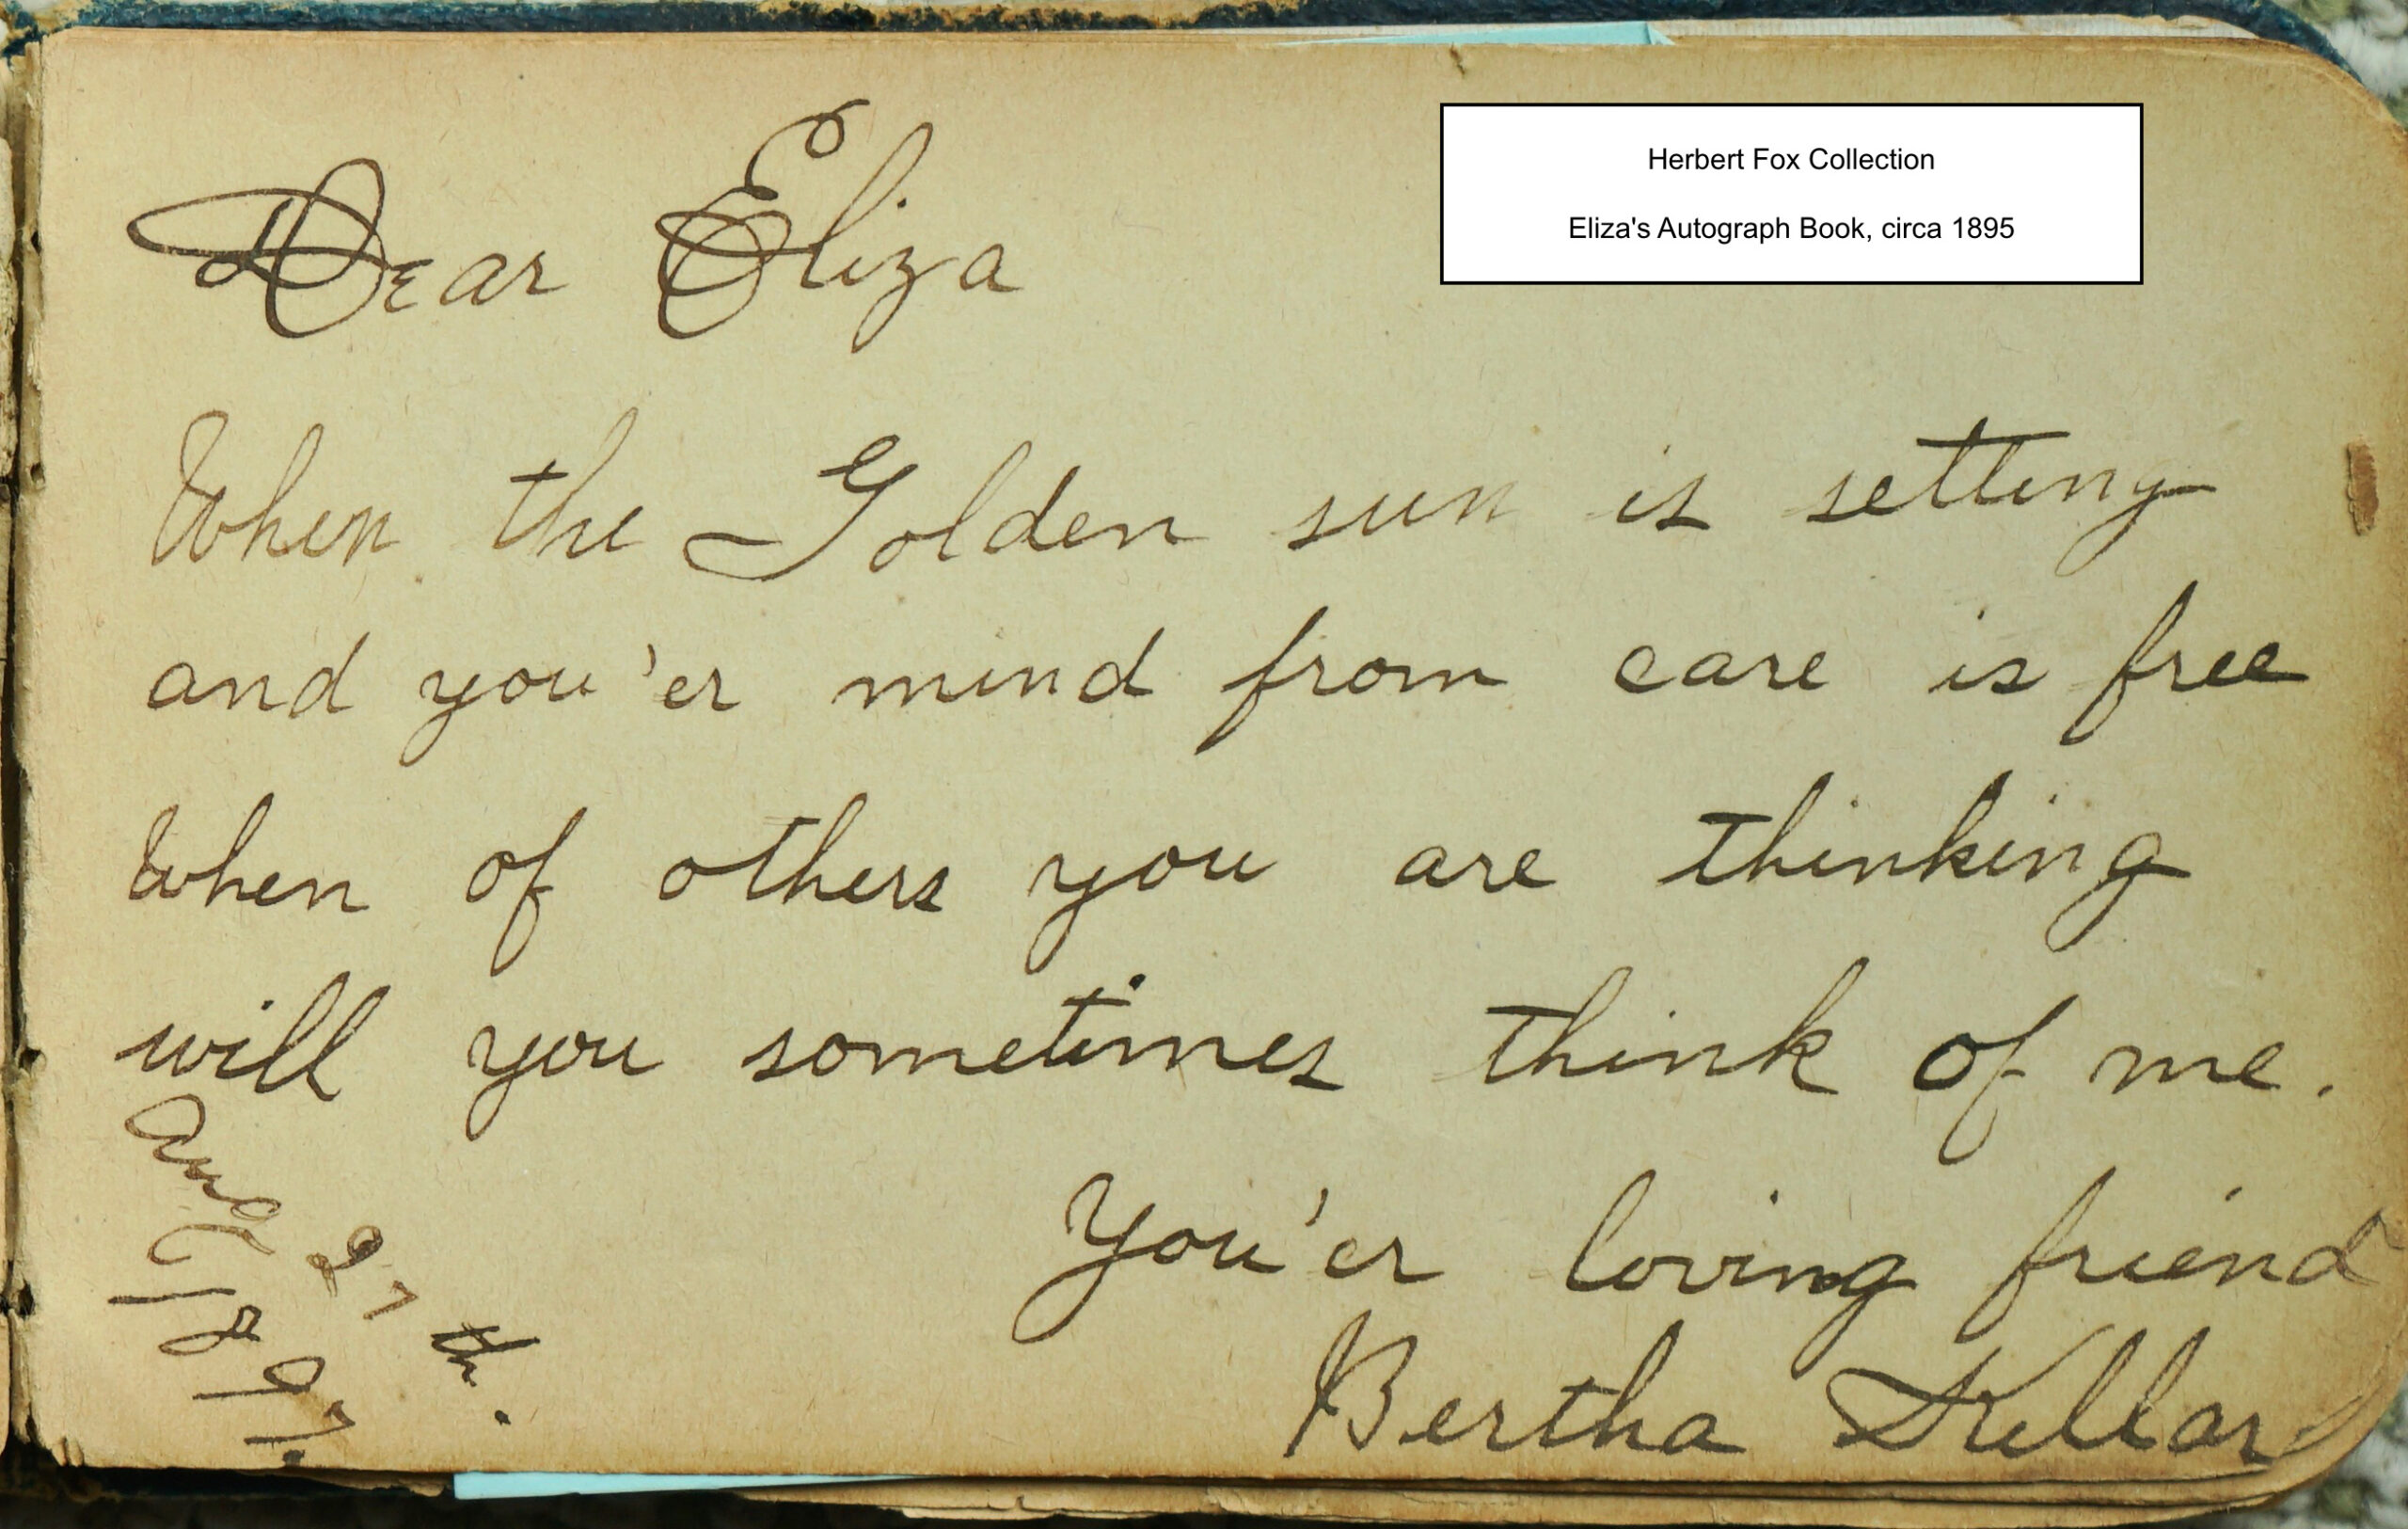 Herbert Fox Collection
Eliza's Autograph Book, circa 1895
Dear Eliza
When the Golden sun is setting
and you'er mind from care is free
When of others you are thinking
will you sometimes think of me.
You'er loving friend
Bertha Kellar
Aug 27th.
1897.